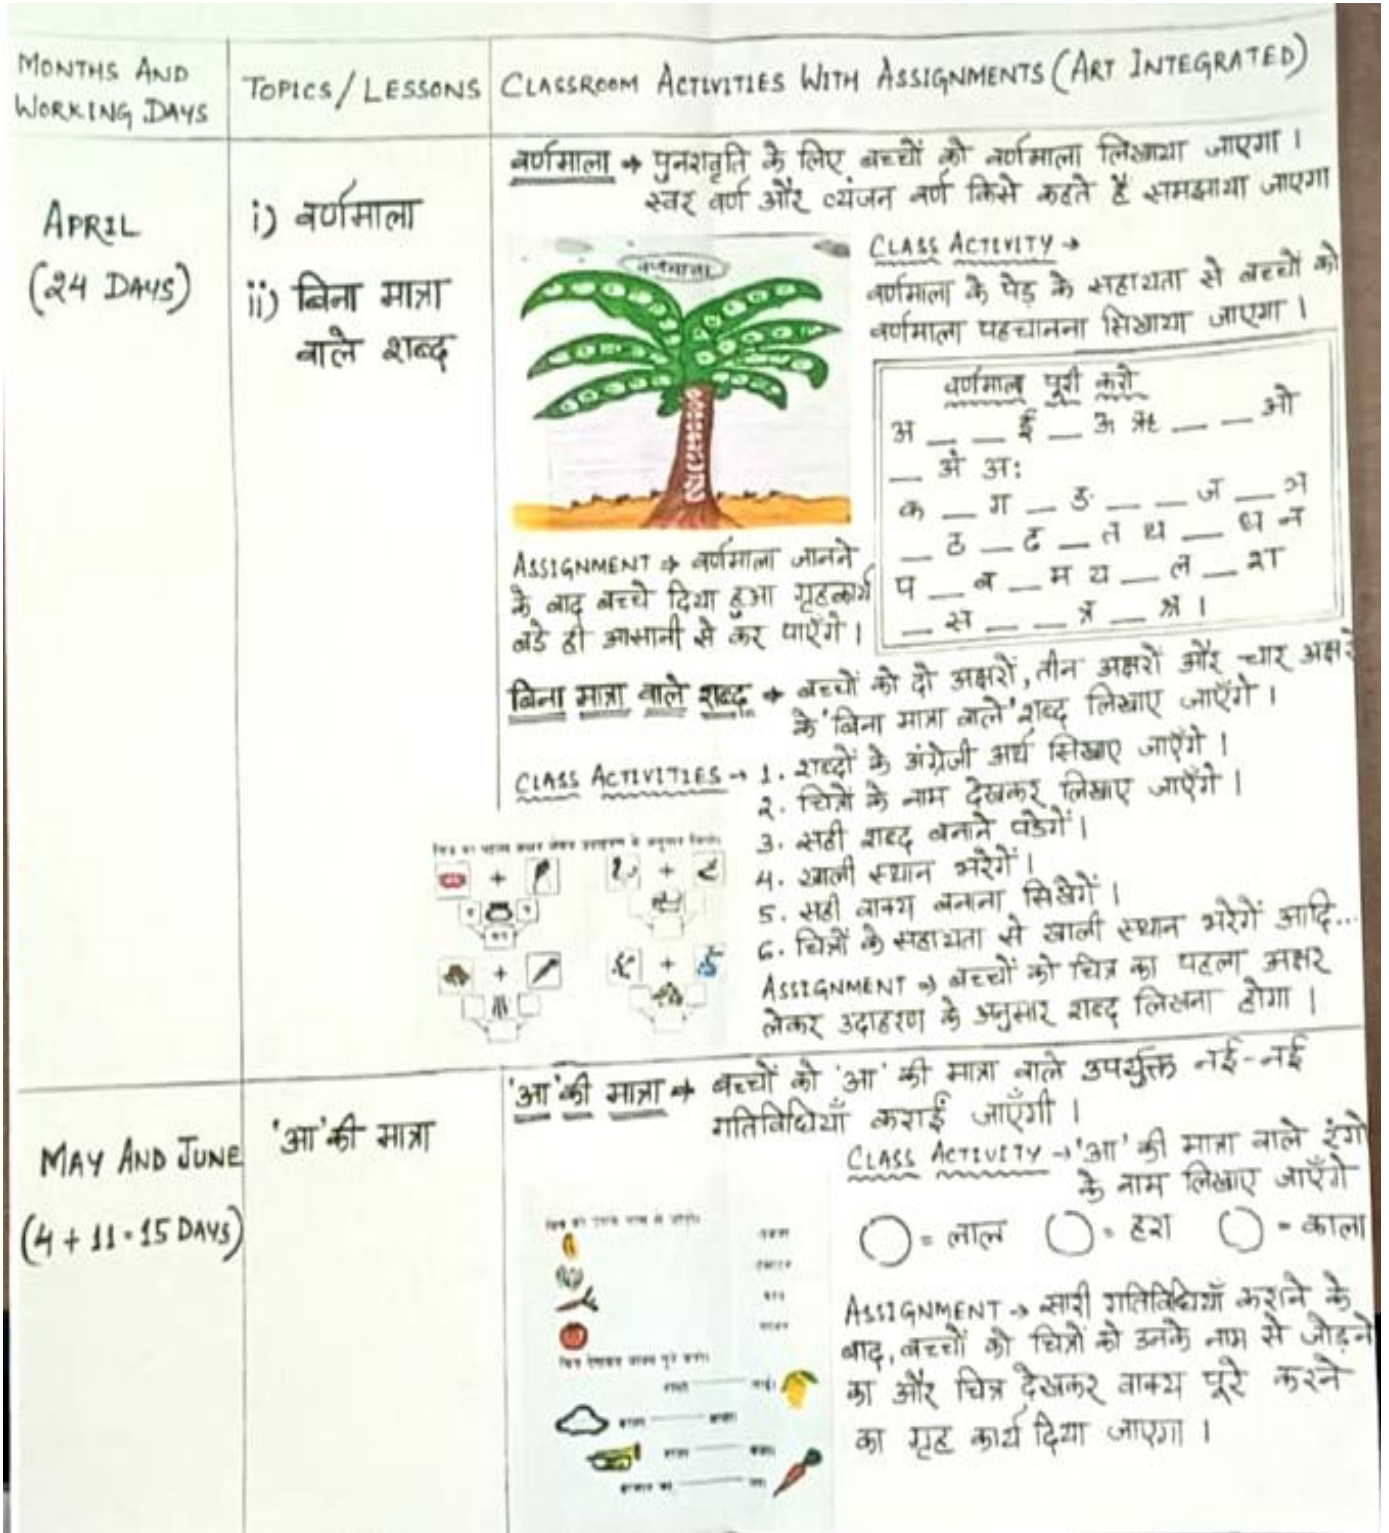 MONTHS AND
WORKING DAYS
TOPICS / LESSONS
CLASSROOM ACTIVITIES WITH ASSIGNMENTS (ART INTEGRATED)
APRIL
(24 DAYS)
i) वर्णमाला
ii) बिना मात्रा
वाले शब्द
वर्णमाला → पुनरावृति के लिए बच्चों को वर्णमाला लिखाया जाएगा ।
स्वर वर्ण और व्यंजन वर्ण किसे कहते है समझाया जाएगा
वर्णमाला
CLASS ACTIVITY →
वर्णमाला के पेड़ के सहायता से बच्चों को
वर्णमाला पहचानना सिखाया जाएगा ।
वर्णमाला पूरी करो
अ _ _ ई _ ऊ ऋ _ _ ओ
_ अं अः
क _ ग _ ङ _ _ ज _ ञ
_ ठ _ ढ _ त थ _ ध न
प _ ब _ म य _ ल _ श
_ स _ _ त्र _ श्र ।
ASSIGNMENT → वर्णमाला जानने
के बाद बच्चे दिया हुआ गृहकार्य
बडे ही आसानी से कर पाएँगे ।
बिना मात्रा वाले शब्द → बच्चों को दो अक्षरों, तीन अक्षरों और चार अक्षरों
के 'बिना मात्रा वाले' शब्द लिखाए जाएँगे ।
CLASS ACTIVITIES → 1. शब्दों के अंग्रेजी अर्थ सिखाए जाएँगे ।
2. चित्रों के नाम देखकर लिखाए जाएँगे ।
3. सही शब्द बनाने पडेगें ।
4. खाली स्थान भरेगें ।
5. सही वाक्य बनाना सिखेगें ।
6. चित्रों के सहायता से खाली स्थान भरेगें आदि...
ASSIGNMENT → बच्चों को चित्र का पहला अक्षर
लेकर उदाहरण के अनुसार शब्द लिखना होगा ।
चित्र का पहला अक्षर लेकर उदाहरण के अनुसार लिखो।
MAY AND JUNE
(4 + 11 = 15 DAYS)
'आ' की मात्रा
'आ' की मात्रा → बच्चों को 'आ' की मात्रा वाले उपर्युक्त नई-नई
गतिविधियाँ कराई जाएँगी ।
CLASS ACTIVITY → 'आ' की मात्रा वाले रंगो
के नाम लिखाए जाएँगे
= लाल = हरा = काला
ASSIGNMENT → सारी गतिविधियाँ कराने के
बाद, बच्चों को चित्रों को उनके नाम से जोड़ने
का और चित्र देखकर वाक्य पूरे करने
का गृह कार्य दिया जाएगा ।
चित्र को उसके नाम से जोड़ो।
टमाटर
गाजर
चित्र देखकर वाक्य पूरे करो।